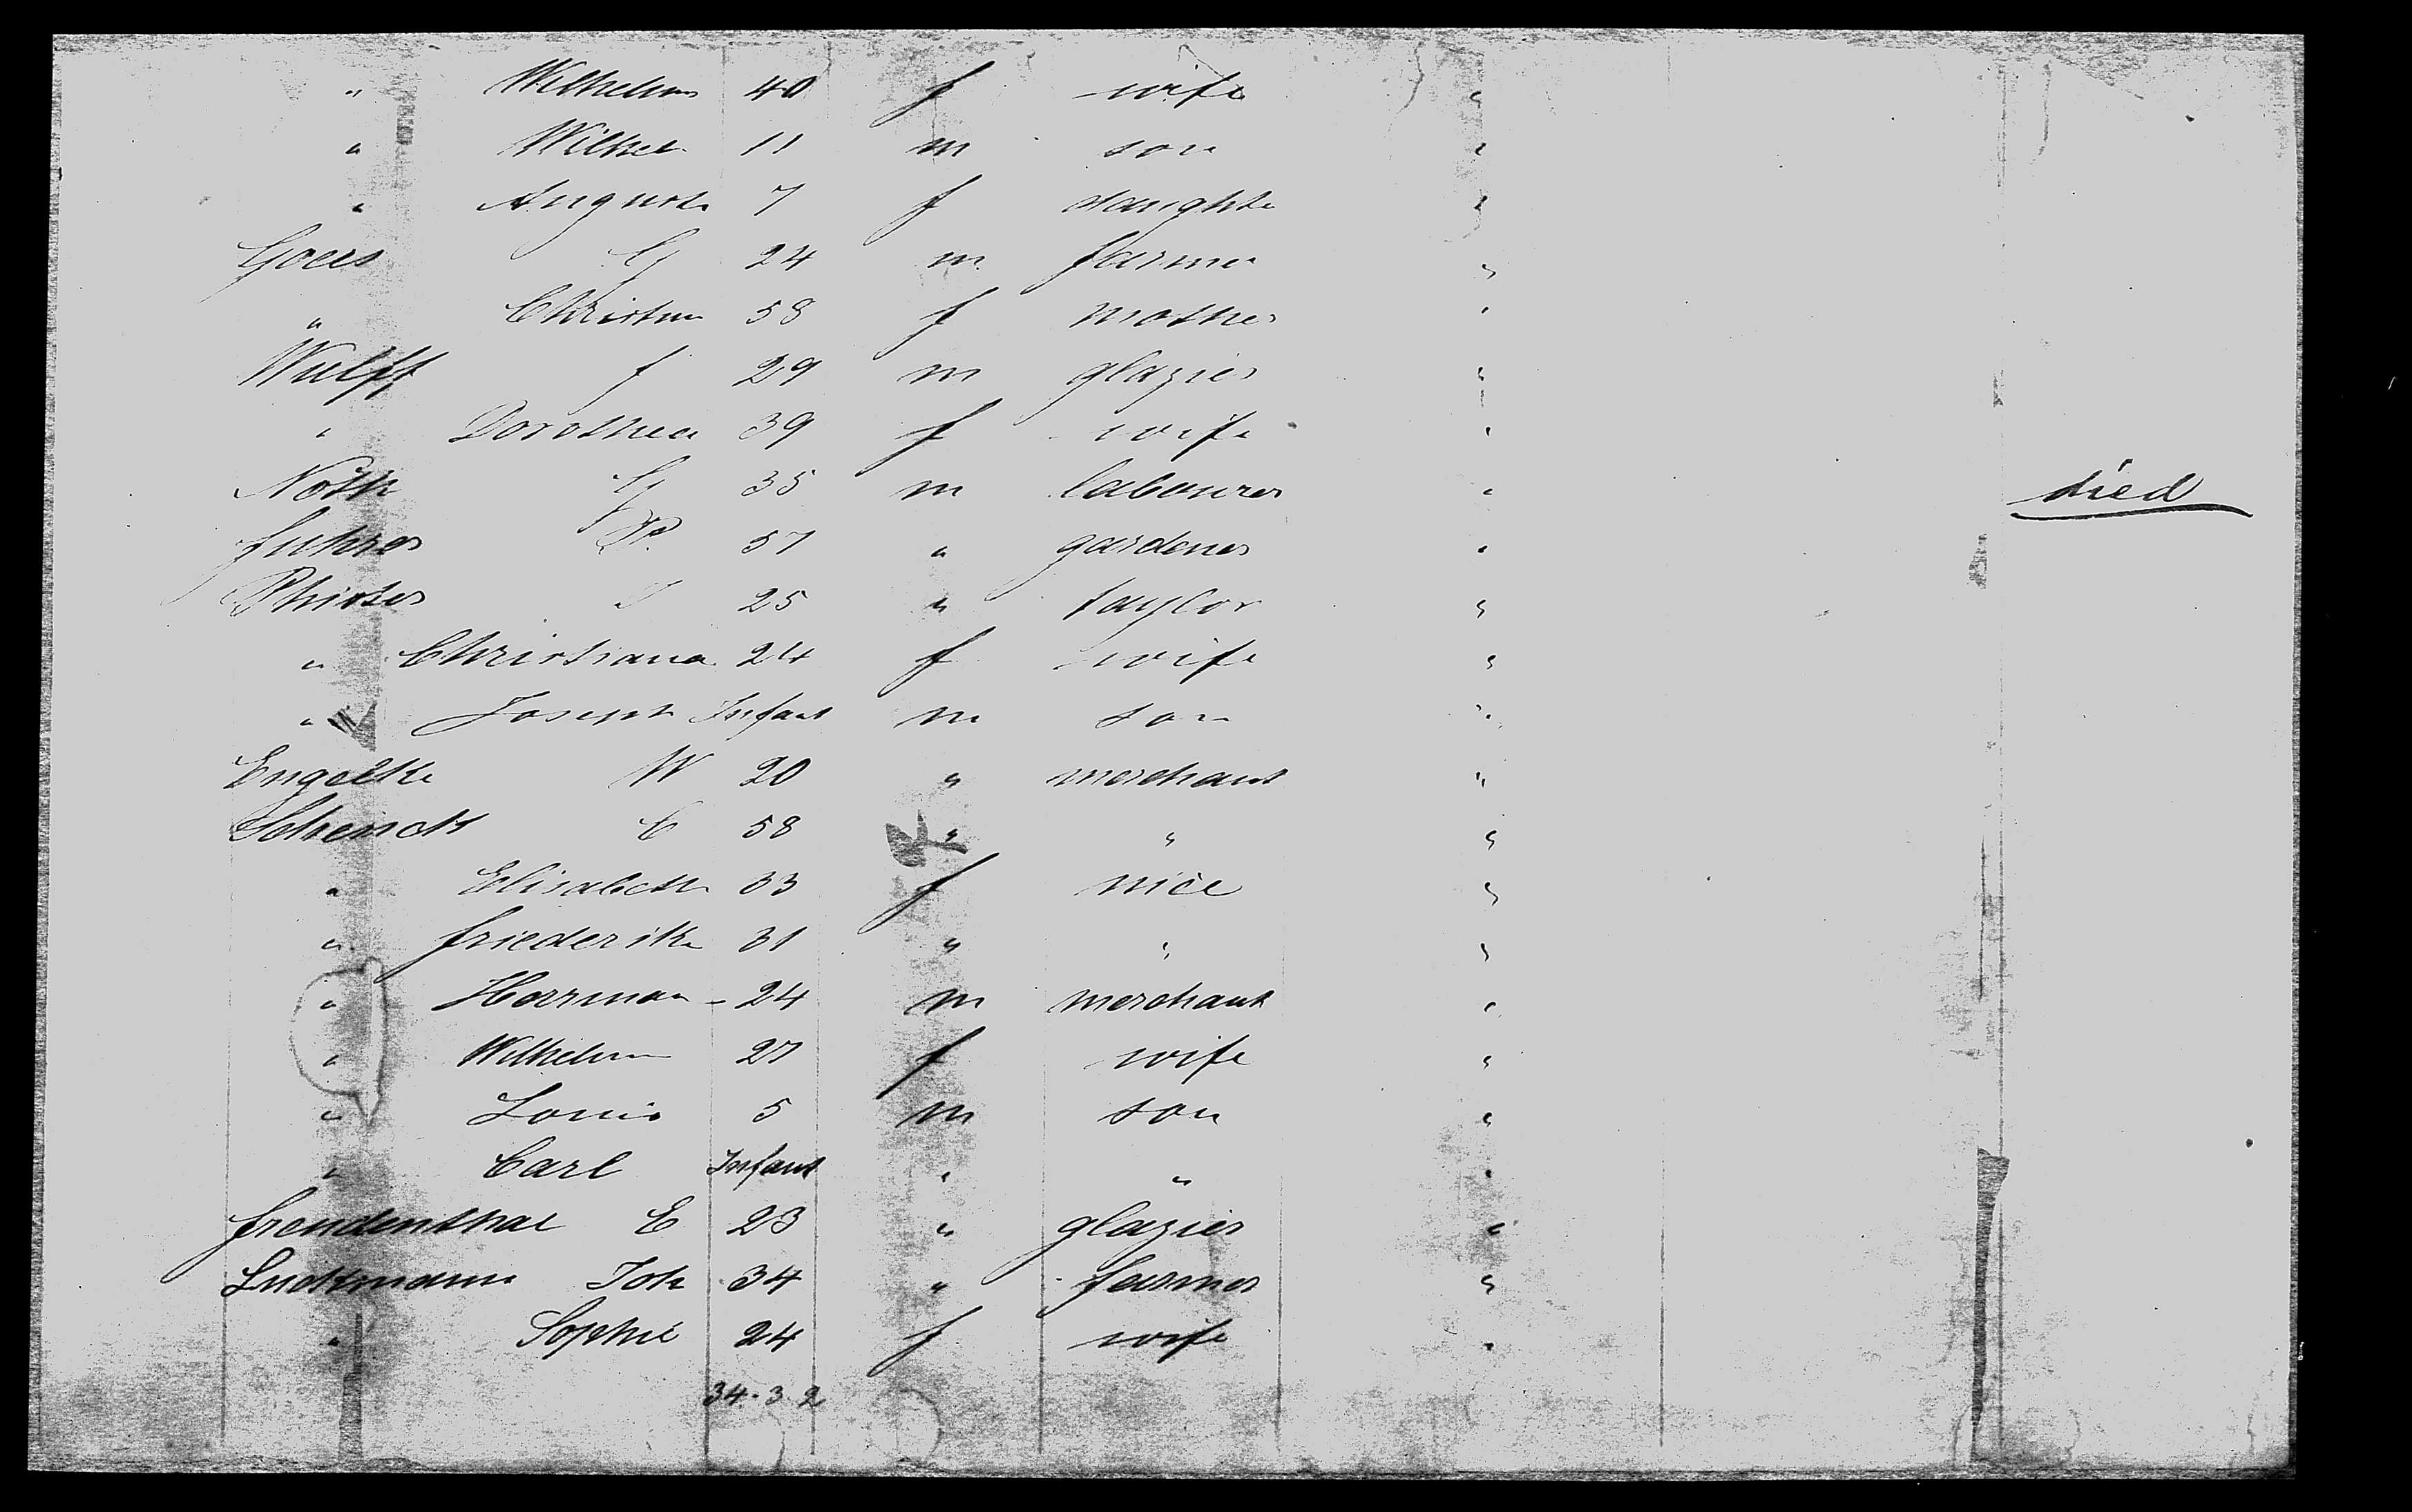 " Wilhelm 40 f wife "
" Wilhel 11 m son "
" Auguste 7 f daughte "
Goers G 24 m farmer "
" Christine 58 f mother "
Wulff f 29 m glazier "
" Dorothea 39 f wife "
Noth G 35 m labourer " died
fuhrer 57 " gardener "
25 " taylor "
" Christiana 24 f wife "
" Joseph Infant m son "
Engelke W 20 " merchant "
Schenck C 58 " " "
" Elisabeth 33 f nice "
" friederike 31 " " "
" Herrman - 24 m merchant "
" Wilhelm 27 f wife "
" Louis 5 m son "
" Carl Infant " " "
freudenthal E 23 " glazier "
Joh 34 " farmer "
" Sophie 24 f wife "
34. 3. 2